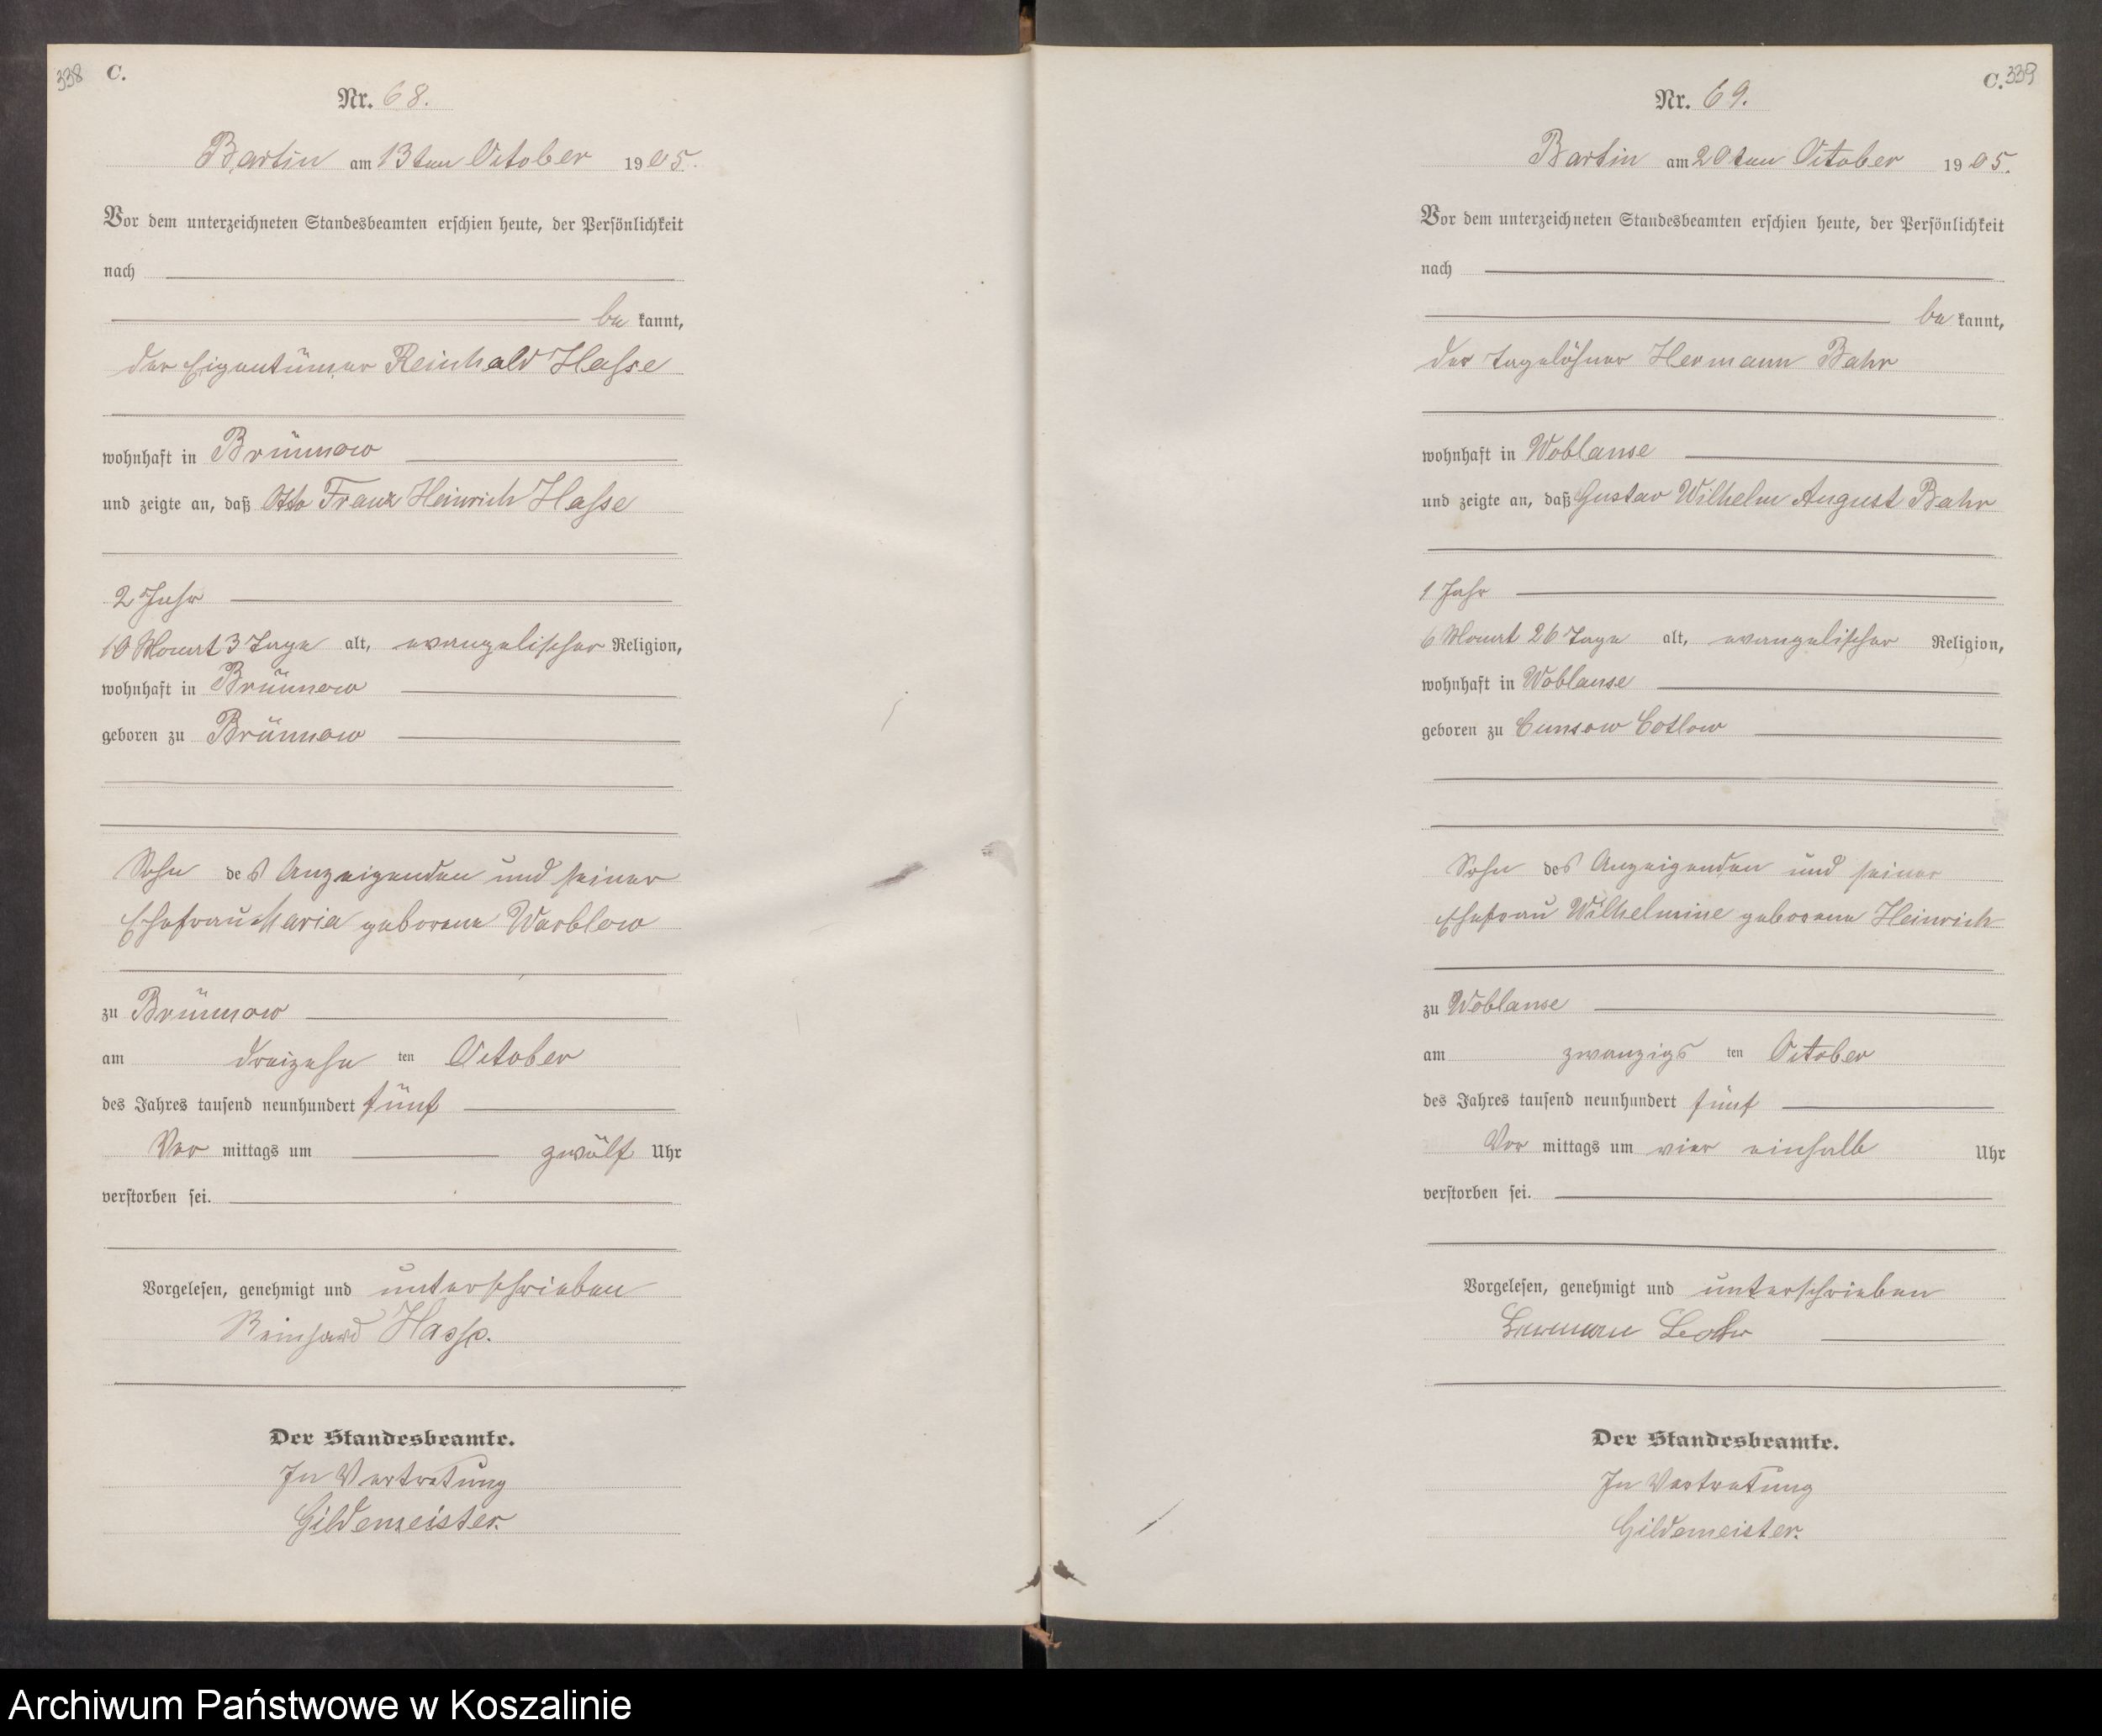 338 C.
Nr. 68.
Bartin am 13ten October 1905.
Vor dem unterzeichneten Standesbeamten erschien heute, der Persönlichkeit
nach
be kannt,
der Eigentümer Reinhald Hasse
wohnhaft in Brünnow
und zeigte an, daß Otto Franz Heinrich Hasse
2 Jahr
10 Monat 3 Tage alt, evangelischer Religion,
wohnhaft in Brünnow
geboren zu Brünnow
Sohn des Anzeigenden und seiner
Ehefrau Maria geborene Warblow
zu Brünnow
am dreizehn ten October
des Jahres tausend neunhundert fünf
Vor mittags um zwölf Uhr
verstorben sei.
Vorgelesen, genehmigt und unterschrieben
Reinhard Hasse.
Der Standesbeamte.
In Vertretung
Gildemeister.
C. 339
Nr. 69.
Bartin am 20ten October 1905.
Vor dem unterzeichneten Standesbeamten erschien heute, der Persönlichkeit
nach
be kannt,
der Tagelöhner Hermann Bahr
wohnhaft in Woblanse
und zeigte an, daß Gustav Wilhelm August Bahr
1 Jahr
6 Monat 26 Tage alt, evangelischer Religion,
wohnhaft in Woblanse
geboren zu Cunsow Cotlow
Sohn des Anzeigenden und seiner
Ehefrau Wilhelmine geborene Heinrich
zu Woblanse
am zwanzigs ten October
des Jahres tausend neunhundert fünf
Vor mittags um vier einhalb Uhr
verstorben sei.
Vorgelesen, genehmigt und unterschrieben
Der Standesbeamte.
In Vertretung
Gildemeister.
Archiwum Państwowe w Koszalinie